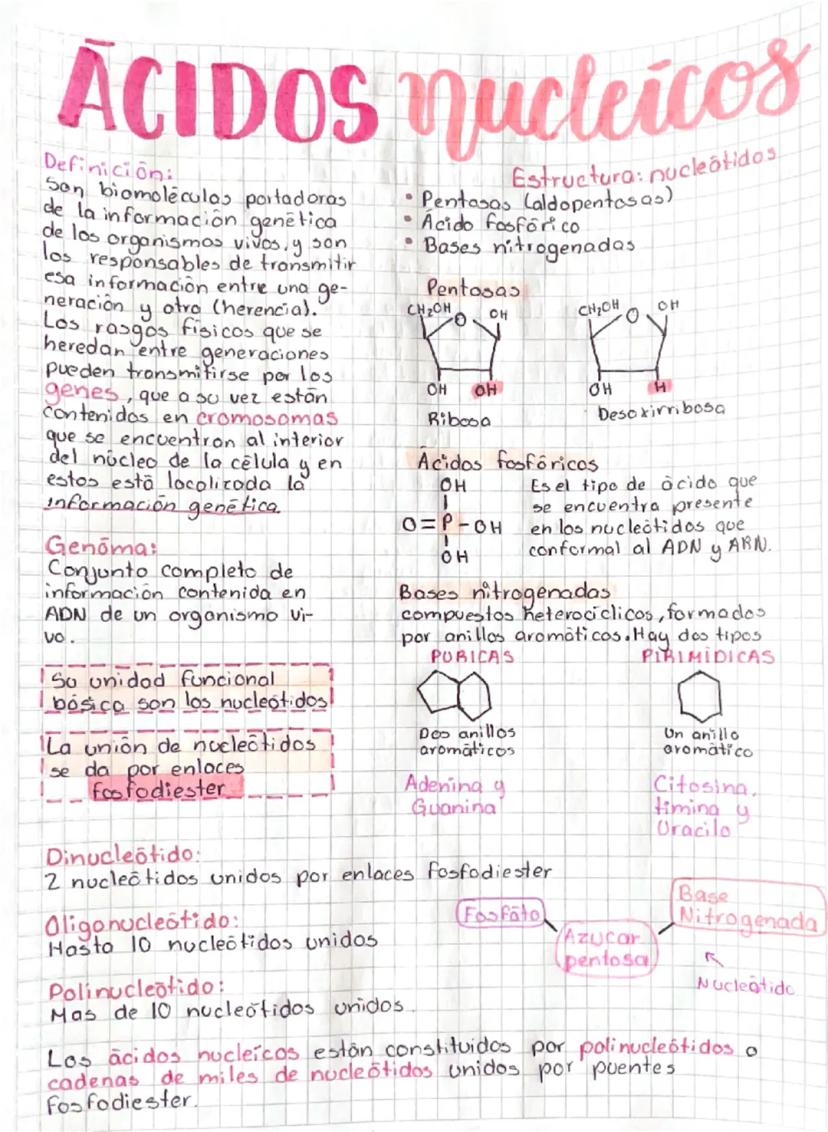 ĀCIDOS nucleīcos
Definiciōn:
Son biomolēculas portadoras
de la informaciōn genētica
de los organismos vivos, y son
los responsables de transmitir
esa informaciōn entre una ge-
neraciōn y otra (herencia).
Los rasgos fīsicos que se
heredan entre generaciones
pueden transmitirse por los
genes, que a su vez estān
contenidos en cromosomas
que se encuentran al interior
del nūcleo de la cēlula y en
estos estā localizada la
informaciōn genētica.
Genōma:
Conjunto completo de
informaciōn contenida en
ADN de un organismo vi-
vo.
Su unidad funcional
bāsica son los nucleōtidos
La uniōn de nucleōtidos
se da por enlaces
fosfodiester
Estructura: nucleōtidos
• Pentosas (aldopentosas)
• Ācido fosfōrico
• Bases nitrogenadas
Pentosas
CH₂OH O OH
OH OH
Ribosa
CH₂OH O OH
OH H
Desoxirribosa
Ācidos fosfōricos
OH
O=P-OH
OH
Es el tipo de ācido que
se encuentra presente
en los nucleōtidos que
conformal al ADN y ARN.
Bases nitrogenadas
compuestos heterocīclicos, formados
por anillos aromāticos. Hay dos tipos
PURICAS
Dos anillos
aromāticos
Adenina y
Guanina
PIRIMĪDICAS
Un anillo
aromātico
Citosina,
timina y
Uracilo
Dinucleōtido:
2 nucleōtidos unidos por enlaces fosfodiester
Oligonucleōtido:
Hasta 10 nucleōtidos unidos
Polinucleōtido:
Mas de 10 nucleōtidos unidos.
Fosfāto
Azucar
pentosa
Base
Nitrogenada
Nucleōtido
Los ācidos nucleīcos estān constituidos por polinucleōtidos o
cadenas de miles de nucleōtidos unidos por puentes
fosfodiester.